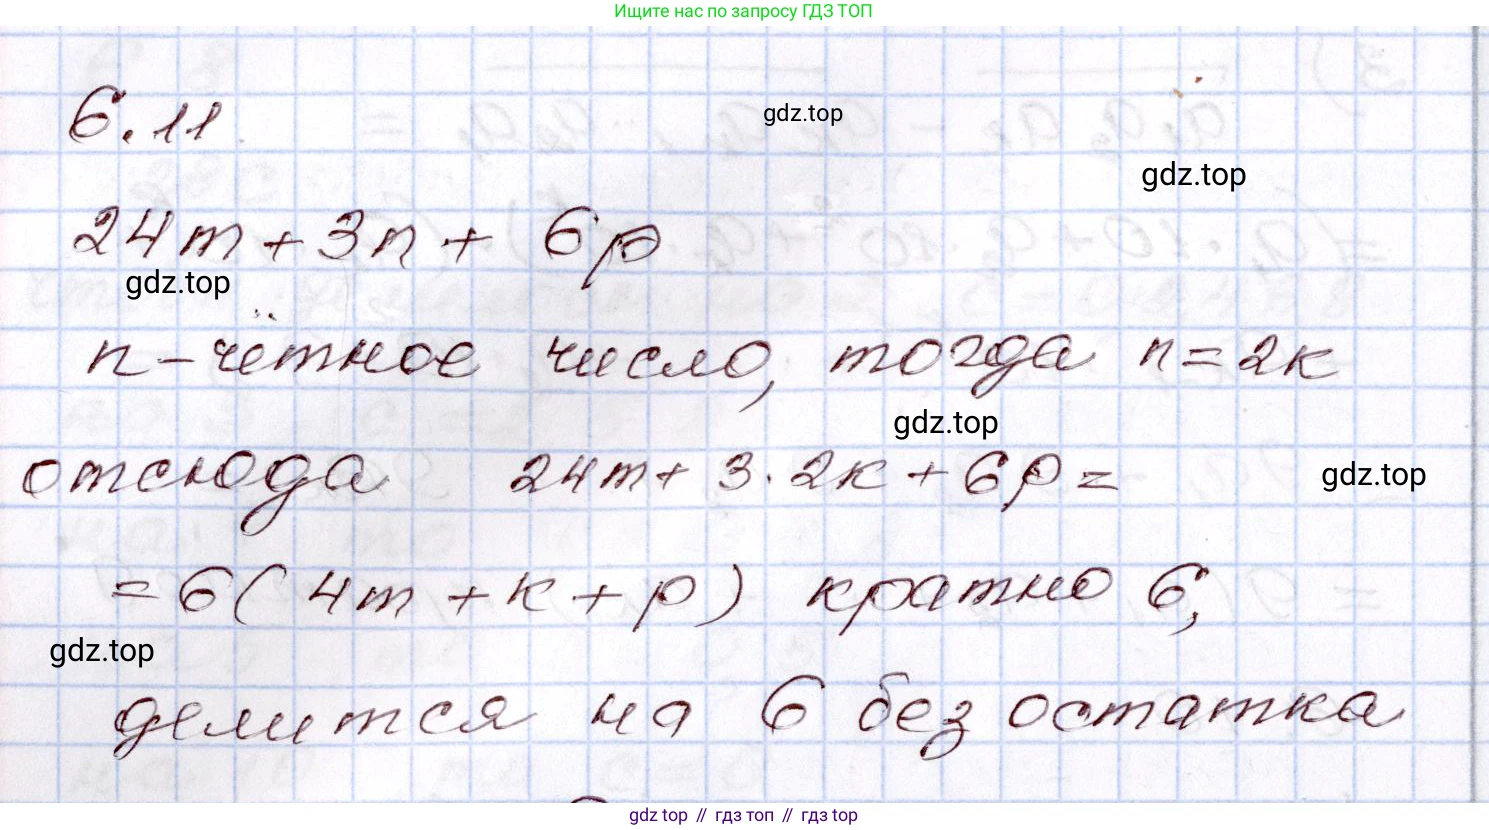 Ищите нас по запросу ГДЗ ТОП
6.11
gdz.top
gdz.top
24m + 3n + 6p
gdz.top
n – чётное число, тогда n = 2к
gdz.top
отсюда 24m + 3 · 2к + 6p =
gdz.top
= 6 ( 4m + к + p ) кратно 6,
gdz.top
делится на 6 без остатка
gdz top // гдз топ // гдз top